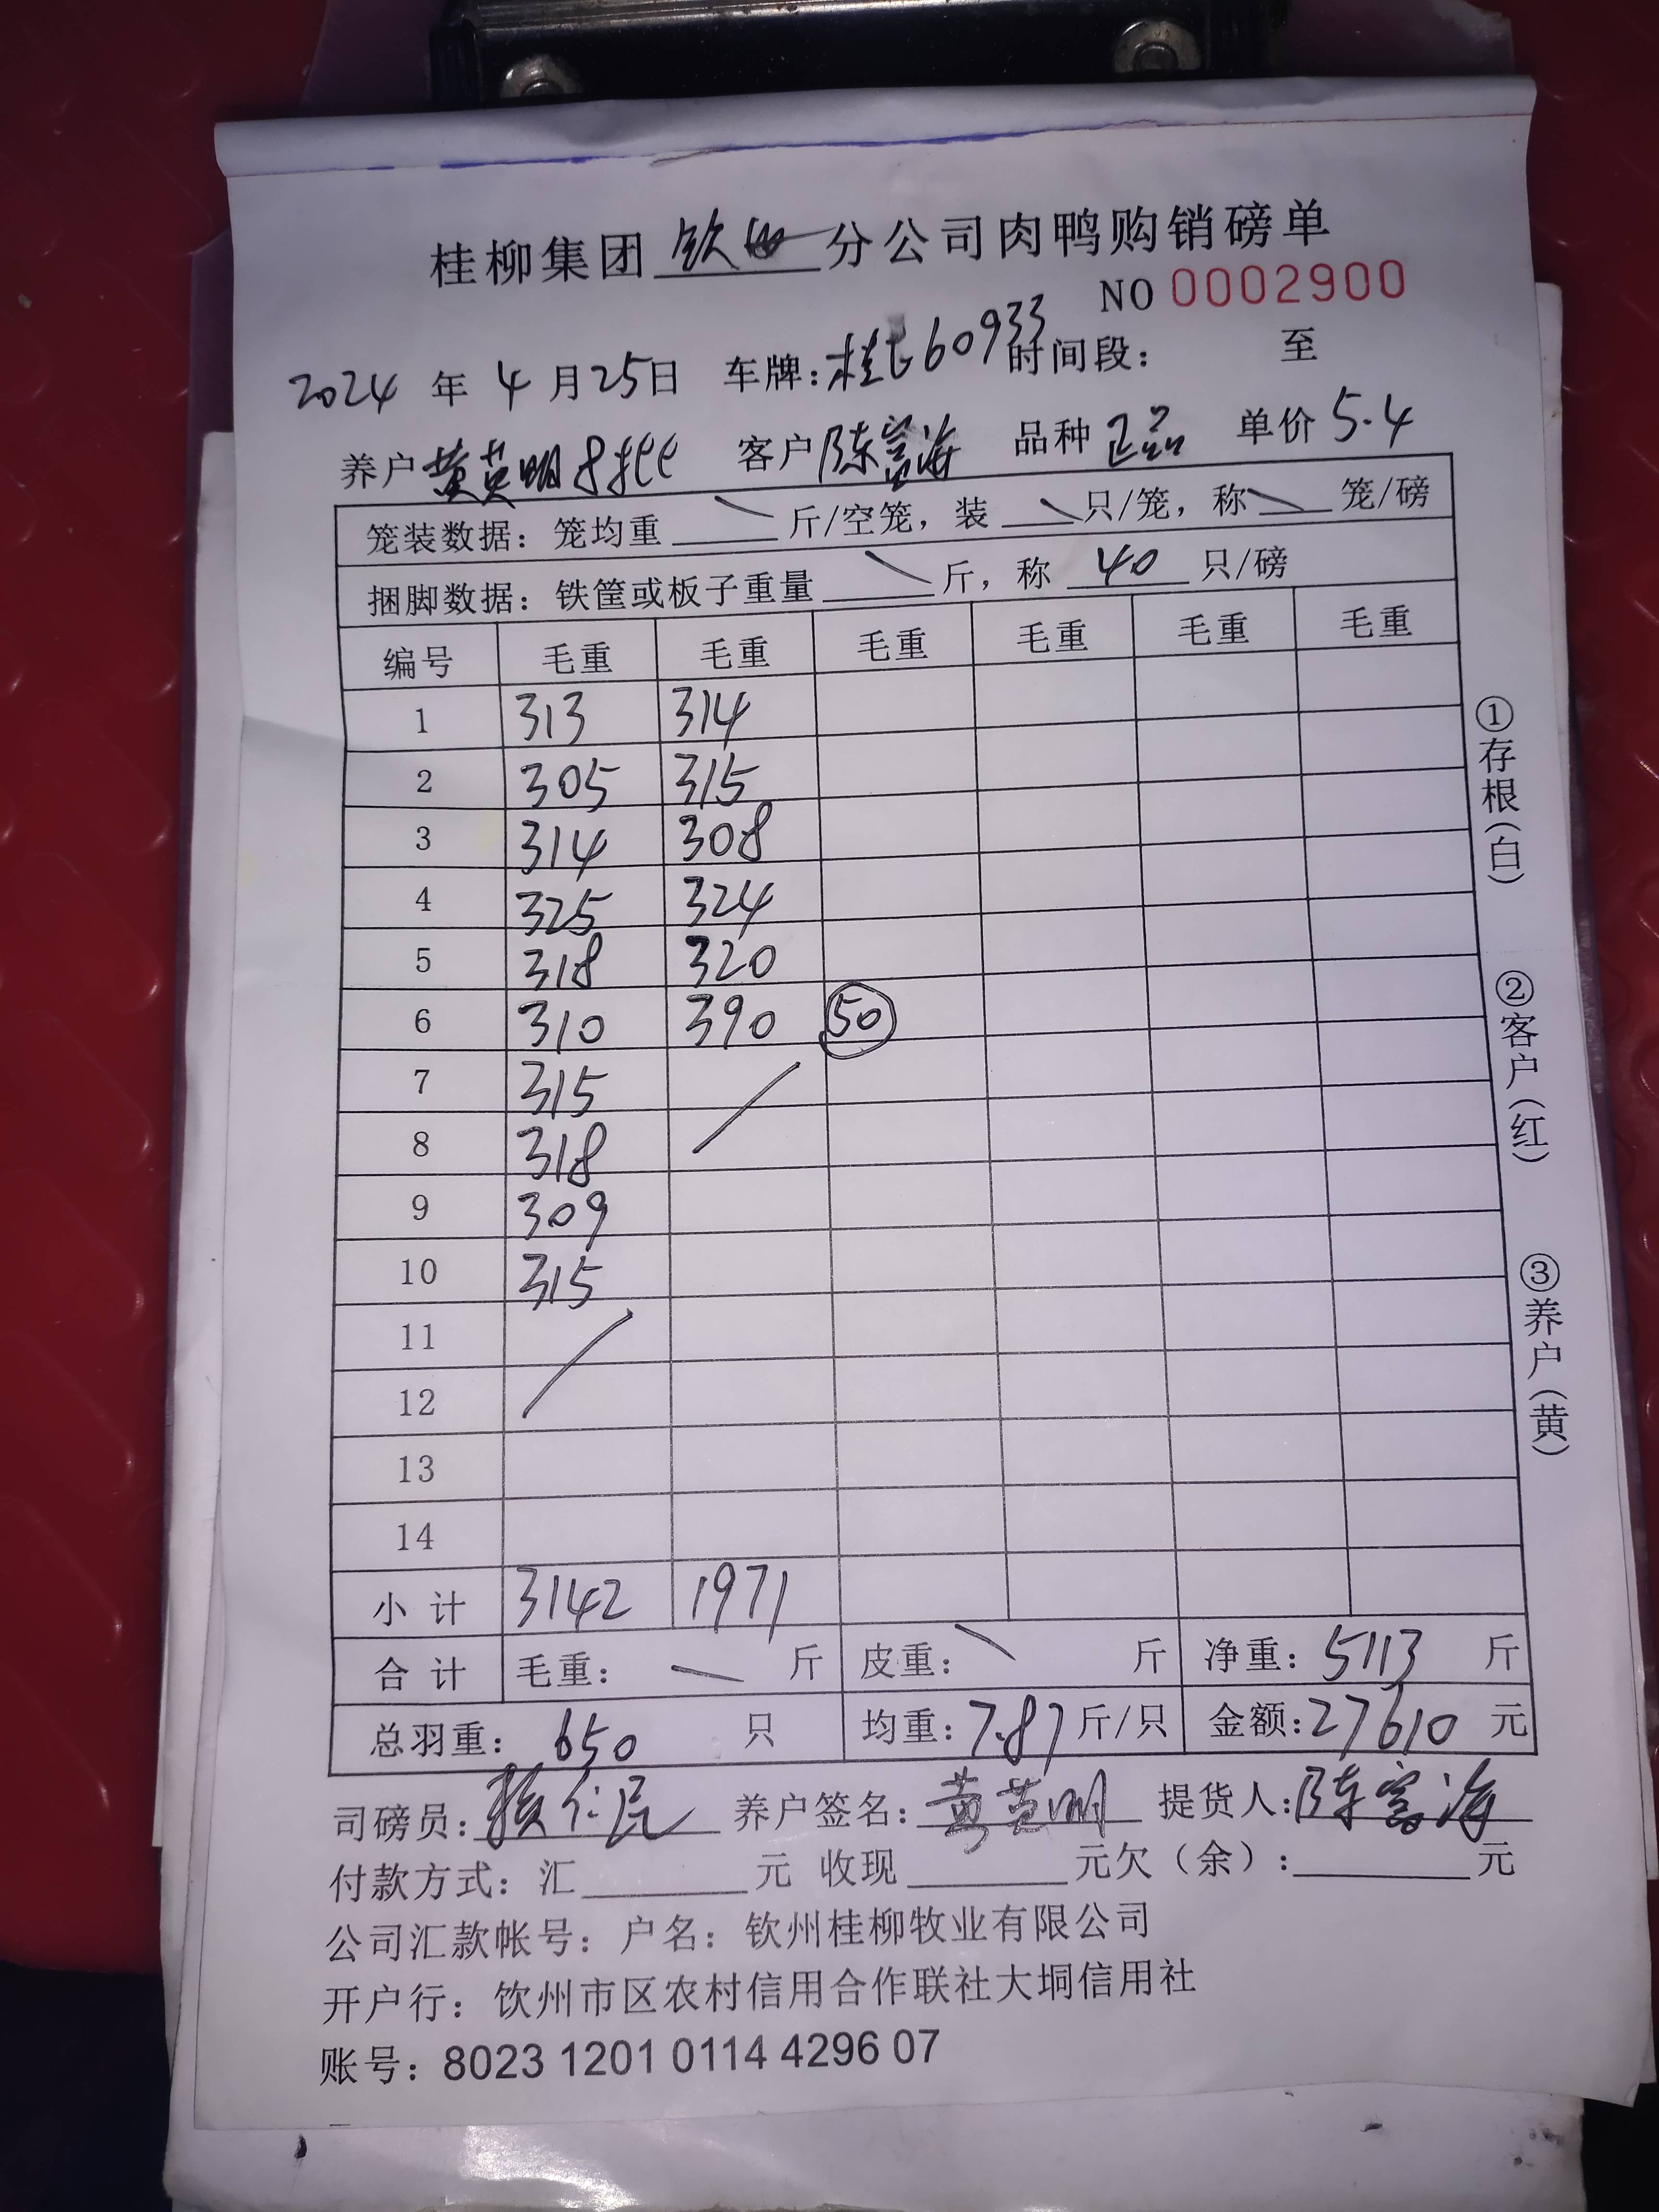 桂柳集团 钦州 分公司肉鸭购销磅单
NO 0002900
2024 年 4 月 25 日 车牌：桂 60933 时间段： 至
养户 黄英明8批 客户 陈富海 品种 正品 单价 5.4
笼装数据：笼均重 ＼ 斤/空笼，装 ＼ 只/笼，称 ＼ 笼/磅
捆脚数据：铁筐或板子重量 ＼ 斤，称 40 只/磅
编号 毛重 毛重 毛重 毛重 毛重 毛重
1 313 314
2 305 315
3 314 308
4 325 324
5 318 320
6 310 390 50
7 315
8 318
9 309
10 315
11
12
13
14
小 计 3142 1971
合 计 毛重： — 斤 皮重： ＼ 斤 净重：5113 斤
总羽重： 650 只 均重：7.87 斤/只 金额：27610 元
司磅员： 仁民 养户签名：黄英明 提货人：陈富海
付款方式：汇 元 收现 元欠（余）： 元
公司汇款帐号：户名：钦州桂柳牧业有限公司
开户行：钦州市区农村信用合作联社大垌信用社
账号：8023 1201 0114 4296 07
①存根（白） ②客户（红） ③养户（黄）